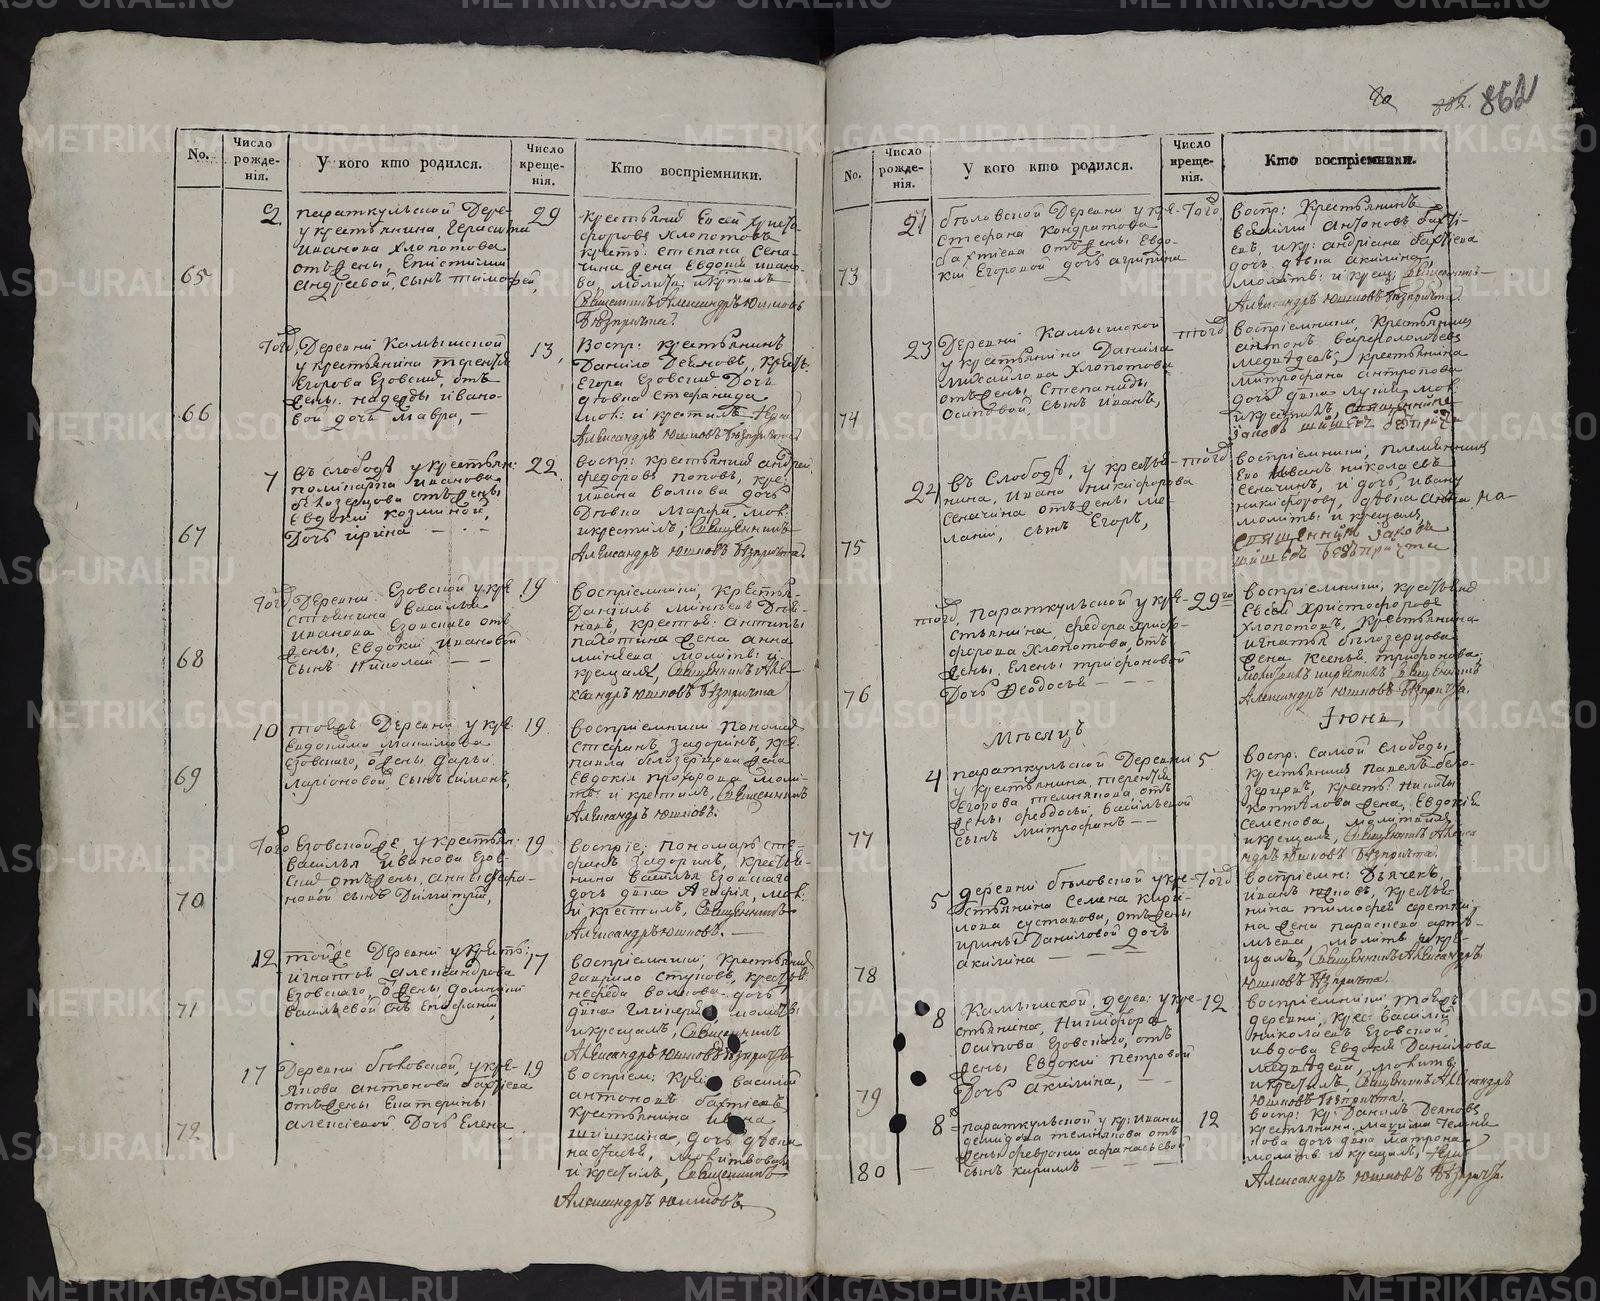 862
No.
Число рожде-нія.
У кого кто родился.
Число креще-нія.
Кто воспріемники.
65
2
параткульской Дере-
у крестьянина, Герасима
Иванова Хлопотова
отъ жены, Епистиміи
андреевой, сынъ тимофей,
29
крестьянинъ Евсей Христо-
форовъ Хлопотовъ
крест: степана Сена-
чина жена Евдокія ивано-
ва, молитв: и крестилъ
Священникъ Александръ Юшковъ
безпричта.
66
того, Деревни Камышской
у крестьянина терентья
Егорова Езовскаго, отъ
жены, надежды ивано-
вой дочь Мавра,
13,
Воспр: крестьянинъ
Данило Деяновъ, крест:
Егора Езовскаго Дочь
девка Стефанида
мол: и крестилъ
Александръ Юшковъ безпричта
67
7
въ слободѣ у крестьян:
поликарпа иванова
бѣлозерцова отъ жены
Евдокіи козминой,
Дочь ирина
22
воспр: крестьянинъ андрей
федоровъ поповъ, кре:
ивана волкова дочь
Девка Марфа, мол:
и крестилъ, Священникъ
Александръ Юшковъ безпричта
68
того, Деревни Езовской у кре
стьянина василья
иванова Езовскаго отъ
жены, Евдокіи ивановой
сынъ Николай
19
воспріемники, крестья-
Даніилъ
крестья: антипы
пахотина жена анна
минѣева молитв: и
крещалъ, Священникъ Але-
ксандръ Юшковъ безпричта
69
10
тоежъ Деревни у кре:
Евдокима Максимова
Езовскаго, жены дарьи
ларіоновой, сынъ симонъ,
19.
воспріемники пономарь
стефанъ Задоринъ, кре:
павла бѣлозерцова жена
Евдокія прохорова моли-
тв: и крестилъ, Священникъ
Александръ Юшковъ.
70
того Езовской же, у крестьян:
василья Иванова Езов-
скаго отъ жены, анны
новой сынъ Димитрій,
19
воспріе: пономарь сте-
фанъ Задоринъ, крестья-
нина василья Езовскаго
дочь девка Агафія, мол:
и крестилъ, Священникъ
Александръ Юшковъ.
71
12
тойже Деревни у крестья:
игнатья александрова
Езовскаго, жены домникіи
васильевой сынъ Епифаній,
17
воспріемники, крестьянинъ
гаврило ступовъ, крестья:
нефеда волкова дочь
девка Гликерія, молитв:
и крещалъ, Священникъ
Александръ Юшковъ безпричта
72
17
Деревни бѣловской, у кре-
якова антонова бахтіева
отъ жены Екатерины
алексіевой Дочь Елена.
19
воспріем: кре: василій
антоновъ бахтіевъ
крестьянина ивана
шишкина, дочь девка
настасья, молитвовалъ
и крестилъ, Священникъ
Александръ Юшковъ
No.
Число рожде-нія.
У кого кто родился.
Число креще-нія.
Кто воспріемники.
73
21
бѣловской Деревни у кре-
Стефана Кондратова
бахтіева отъ жены, Евдо-
кіи Егоровой дочь агрипина
того,
воспр: Крестьянинъ
василій Антоновъ бахті-
евъ, и кр: андріана бахтіева
дочь девка акилина,
молитв: и крещ: Священникъ
Александръ Юшковъ безпричта.
74
23
Деревни Камышской
у крестьянина Данила
Михайлова Хлопотова
отъ жены, Степаниды
Осиповой, сынъ иванъ,
того
воспріемники, крестьянинъ
антонъ варфоломеевъ
медведевъ, крестьянина
митрофана антропова
дочь девка лукія, мол:
и крестилъ, священникъ
Іаковъ шишевъ безпричта
75
24
въ Слободѣ, у крестья-
нина, ивана никифорова
сеначина отъ жены ме-
ланіи, сынъ Егоръ,
того
воспріемники, племянникъ
Его иванъ николаевъ
сеначинъ, и дочь, ивана
никифорову, девка анна,
молитв: и крещалъ
священникъ Іаковъ
шишевъ безъ причта
76
того, Параткульской у кре-
стьянина, федора христо-
форова Хлопотова, отъ
жены, Елены трифоновой
Дочь Феодосья
29го
воспріемники, крестьянинъ
Евсей Христофоровъ
Хлопотовъ, крестьянина
игнатья бѣлозерцова
жена Ксенья трифонова,
молитвилъ и крестилъ Священникъ
Александръ Юшковъ безпричта.
Мѣсяцъ
Іюнь,
77
4
параткульской Деревни
у крестьянина, терентья
Егорова темнякова отъ
жены феодосьи, васильевой
сынъ митрофанъ
5
воспр: самой слободы,
крестьянинъ павелъ бѣло-
зерцовъ, крестья: Никиты
коптялова жена, Евдокія
семенова, молитвилъ
и крещалъ, Священникъ Алекса
ндръ Юшковъ безпричта.
78
5
деревни бѣловской у кре-
стьянина Семена Кири-
лова суставова, отъ жены
ирины Даниловой дочь
акилина
того
воспріемн: Дьячекъ,
иванъ поповъ, крестья-
на жена параскева артѣ-
мьева, молитв: и кре-
щалъ, Священникъ Александръ
Юшковъ безпричта.
79
8
Камышской, дерев: у кре-
стьянина, Никифора
Осипова Езовскаго, отъ
жены, Евдокіи Петровой
Дочь акилина,
12
воспріемники, тоежъ
деревни, крес: василій
николаевъ Езовской,
и вдова Евдокія Данилова
медведева, молитв:
и крестилъ, Священникъ Александръ
Юшковъ безпричта.
80
8
параткульской у кр: ивана
демидова темнякова отъ
жены февроніи афанасьевой
сынъ кирилъ
12
воспр: кр: Данилъ Деяновъ
крестьянина. Максима темня-
кова дочь девка матрона
молитв и крещалъ,
Александръ Юшковъ безпричта.
METRIKI.GASO-URAL.RU